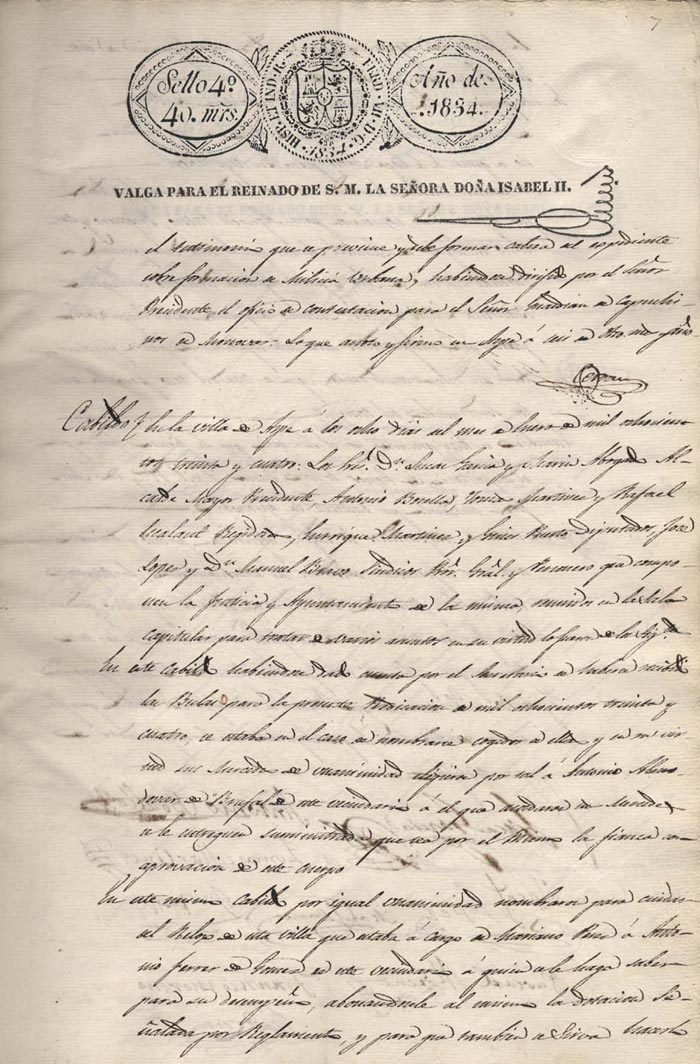 7
Sello 4º
40. mrs.
HISP. ET IND. R. FERD. VII. D. G. 1834.
Año de
1834.
VALGA PARA EL REINADO DE S. M. LA SEÑORA DOÑA ISABEL II.
el testimonio que se previene y debe formar cabeza al espediente
sobre formacion de Milicia Urbana, y habiendose dirijido por el Señor
Presidente el oficio de contestacion para el Señor de Capuchi
nos de Monovar. Lo que anoto y firmo en Aspe á seis de dho mes y año
Cabildo En la villa de Aspe á los ocho dias del mes de Enero de mil ochocien
tos treinta y cuatro: Los Sres. Dn. Lucas Garcia y Al
calde Mayor Presidente, Antonio Botella, Tomas Martinez y Rafael
Regidores, Enrrique Martinez, y Diputados, José
Lopez y Dn. Manuel Sindicos Pror. Gral. y Personero que compo
nen la Justicia y Ayuntamiento de la misma, reunidos en la Sala
capitular para tratar de varios asuntos en su virtud lo hicieron de lo Sigte.
En este Cabildo habiendose dado cuenta por el Secretario de haberse recibido
las Bulas para la presente Predicacion de mil ochocientos treinta y
cuatro, se estaba en el caso de nombrarse cogedor de ella y en su vir
tud sus Mercedes de unanimidad elijieron por tal á Antonio Almo
dovar de Brufal de este vecindario á el que acordaron sus Mercedes
se le entreguen suministrandose que sea por el mismo la fianza con
aprovacion de este cuerpo
En este mismo Cabildo por igual unanimidad nombraron para cuidar
del Relox de esta villa que estaba á cargo de Mariano Perez á Anto
nio Ferrer de Gomez de este vecindario á quien se le haga saber
para su desempeño, abonandosele al mismo la dotacion Se
ñalada por Reglamento, y para que tambien se sirva hacerlo